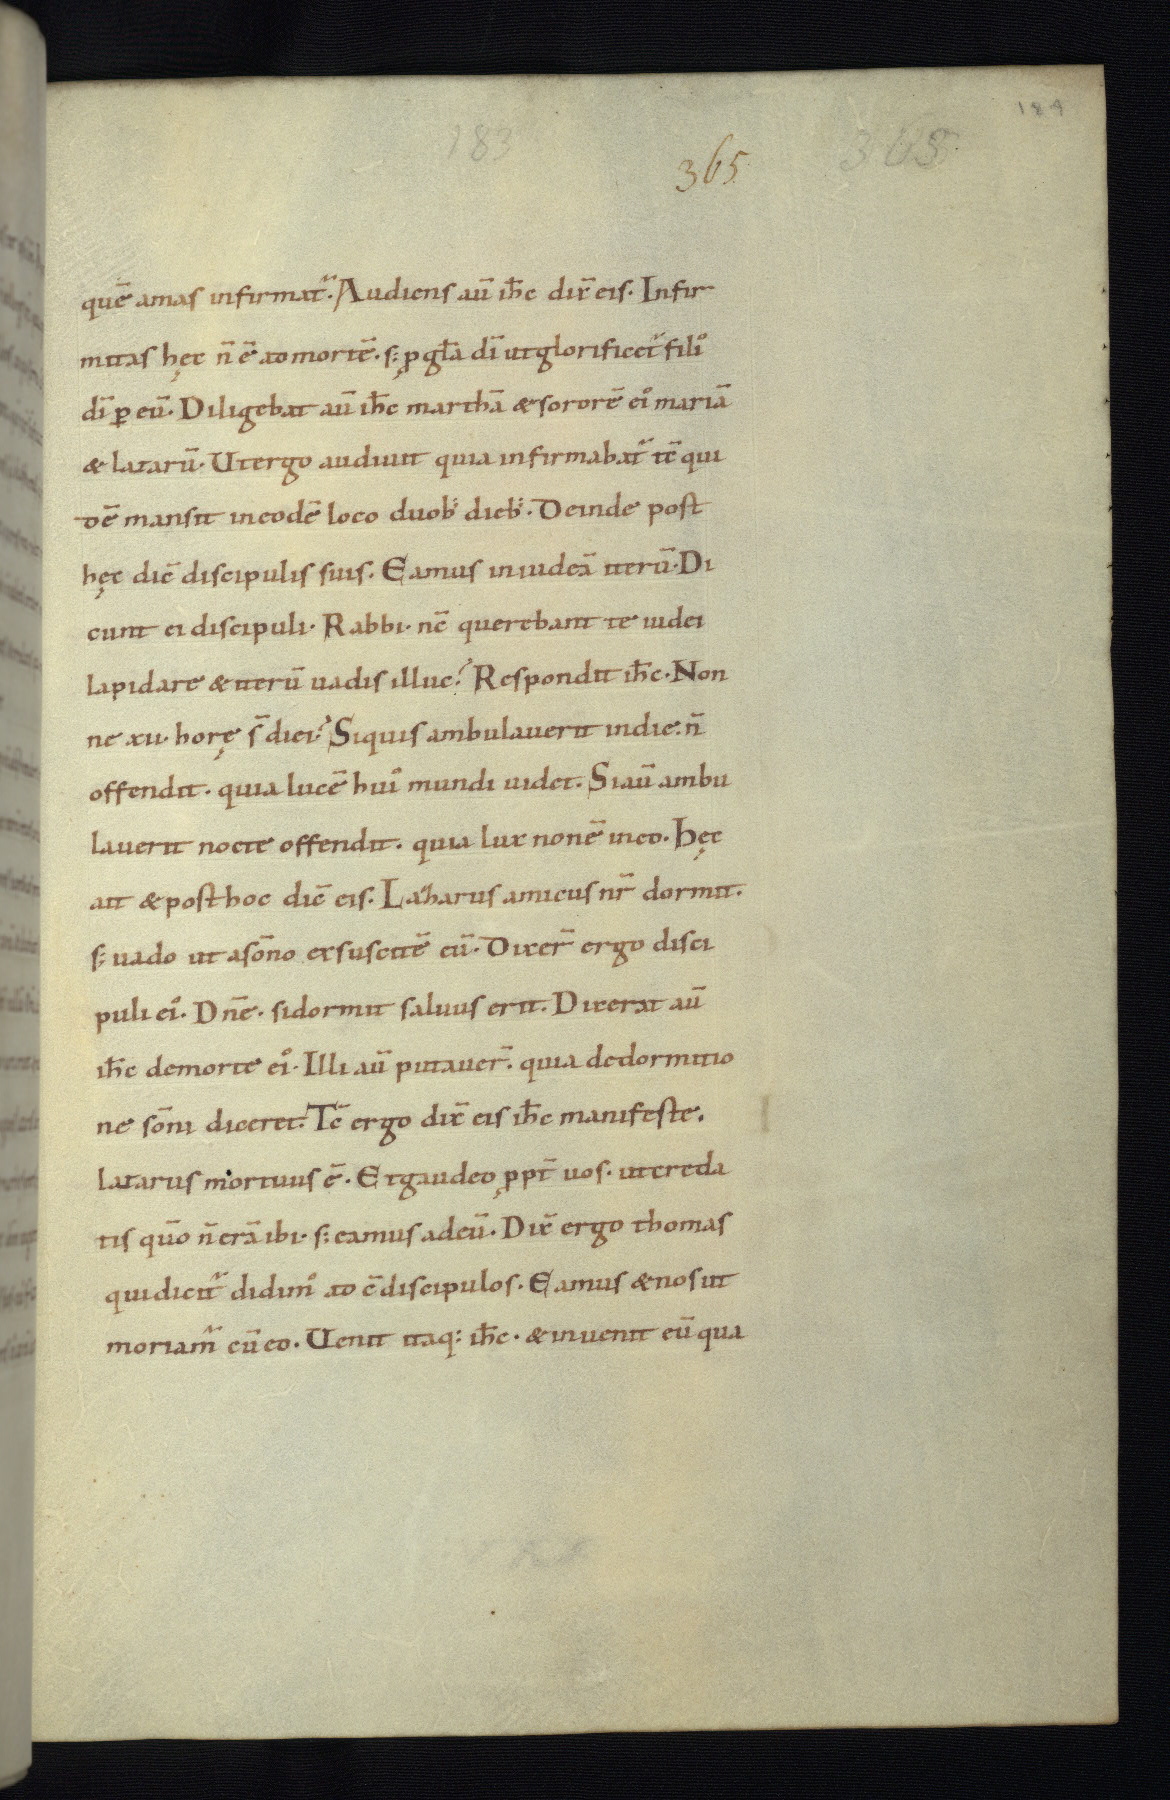 184
183
365
365
quē amas infirmat᷑. Audiens aū ih̄c dix̄ eis. Infir
mitas hęc n̄ ē ad mortē. s; ꝓ gl̄a dī ut glorificet᷑ filiꝰ
dī ꝑ eū. Diligebat aū ih̄c marthā & sororē eiꝰ mariā
& lazarū. Ut ergo audiuit quia infirmabat᷑ tc̄ qui
dē mansit in eodē loco duob; dieb;. Deinde post
hęc dic̄ discipulis suis. Eamus in iudeā iterū. Di
cunt ei discipuli. Rabbi. nc̄ querebant te iudei
lapidare & iterū uadis illuc? Respondit ih̄c. Non
ne xii. horę s̄ diei? Siquis ambulauerit in die. n̄
offendit. quia lucē huiꝰ mundi uidet. Si aū ambu
lauerit nocte offendit. quia lux non ē in eo. Hęc
ait & post hoc dic̄ eis. Lazarus amicus nr̄ dormit.
s; uado ut a sōno exsuscitē eū. Dixer̄ ergo disci
puli eiꝰ. Dn̄e. si dormit saluus erit. Dixerat aū
ih̄c de morte eiꝰ. Illi aū putauer̄. quia de dormitio
ne sōni diceret. Tc̄ ergo dix̄ eis ih̄c manifeste.
lazarus mortuus ē. Et gaudeo ꝓpt̄ uos. ut creda
tis qūo n̄ erā ibi. s; eamus ad eū. Dix̄ ergo thomas
qui dicit᷑ didimꝰ ad c̄discipulos. Eamus & nos ut
moriam᷑ cū eo. Uenit itaq; ih̄c. & inuenit eū qua